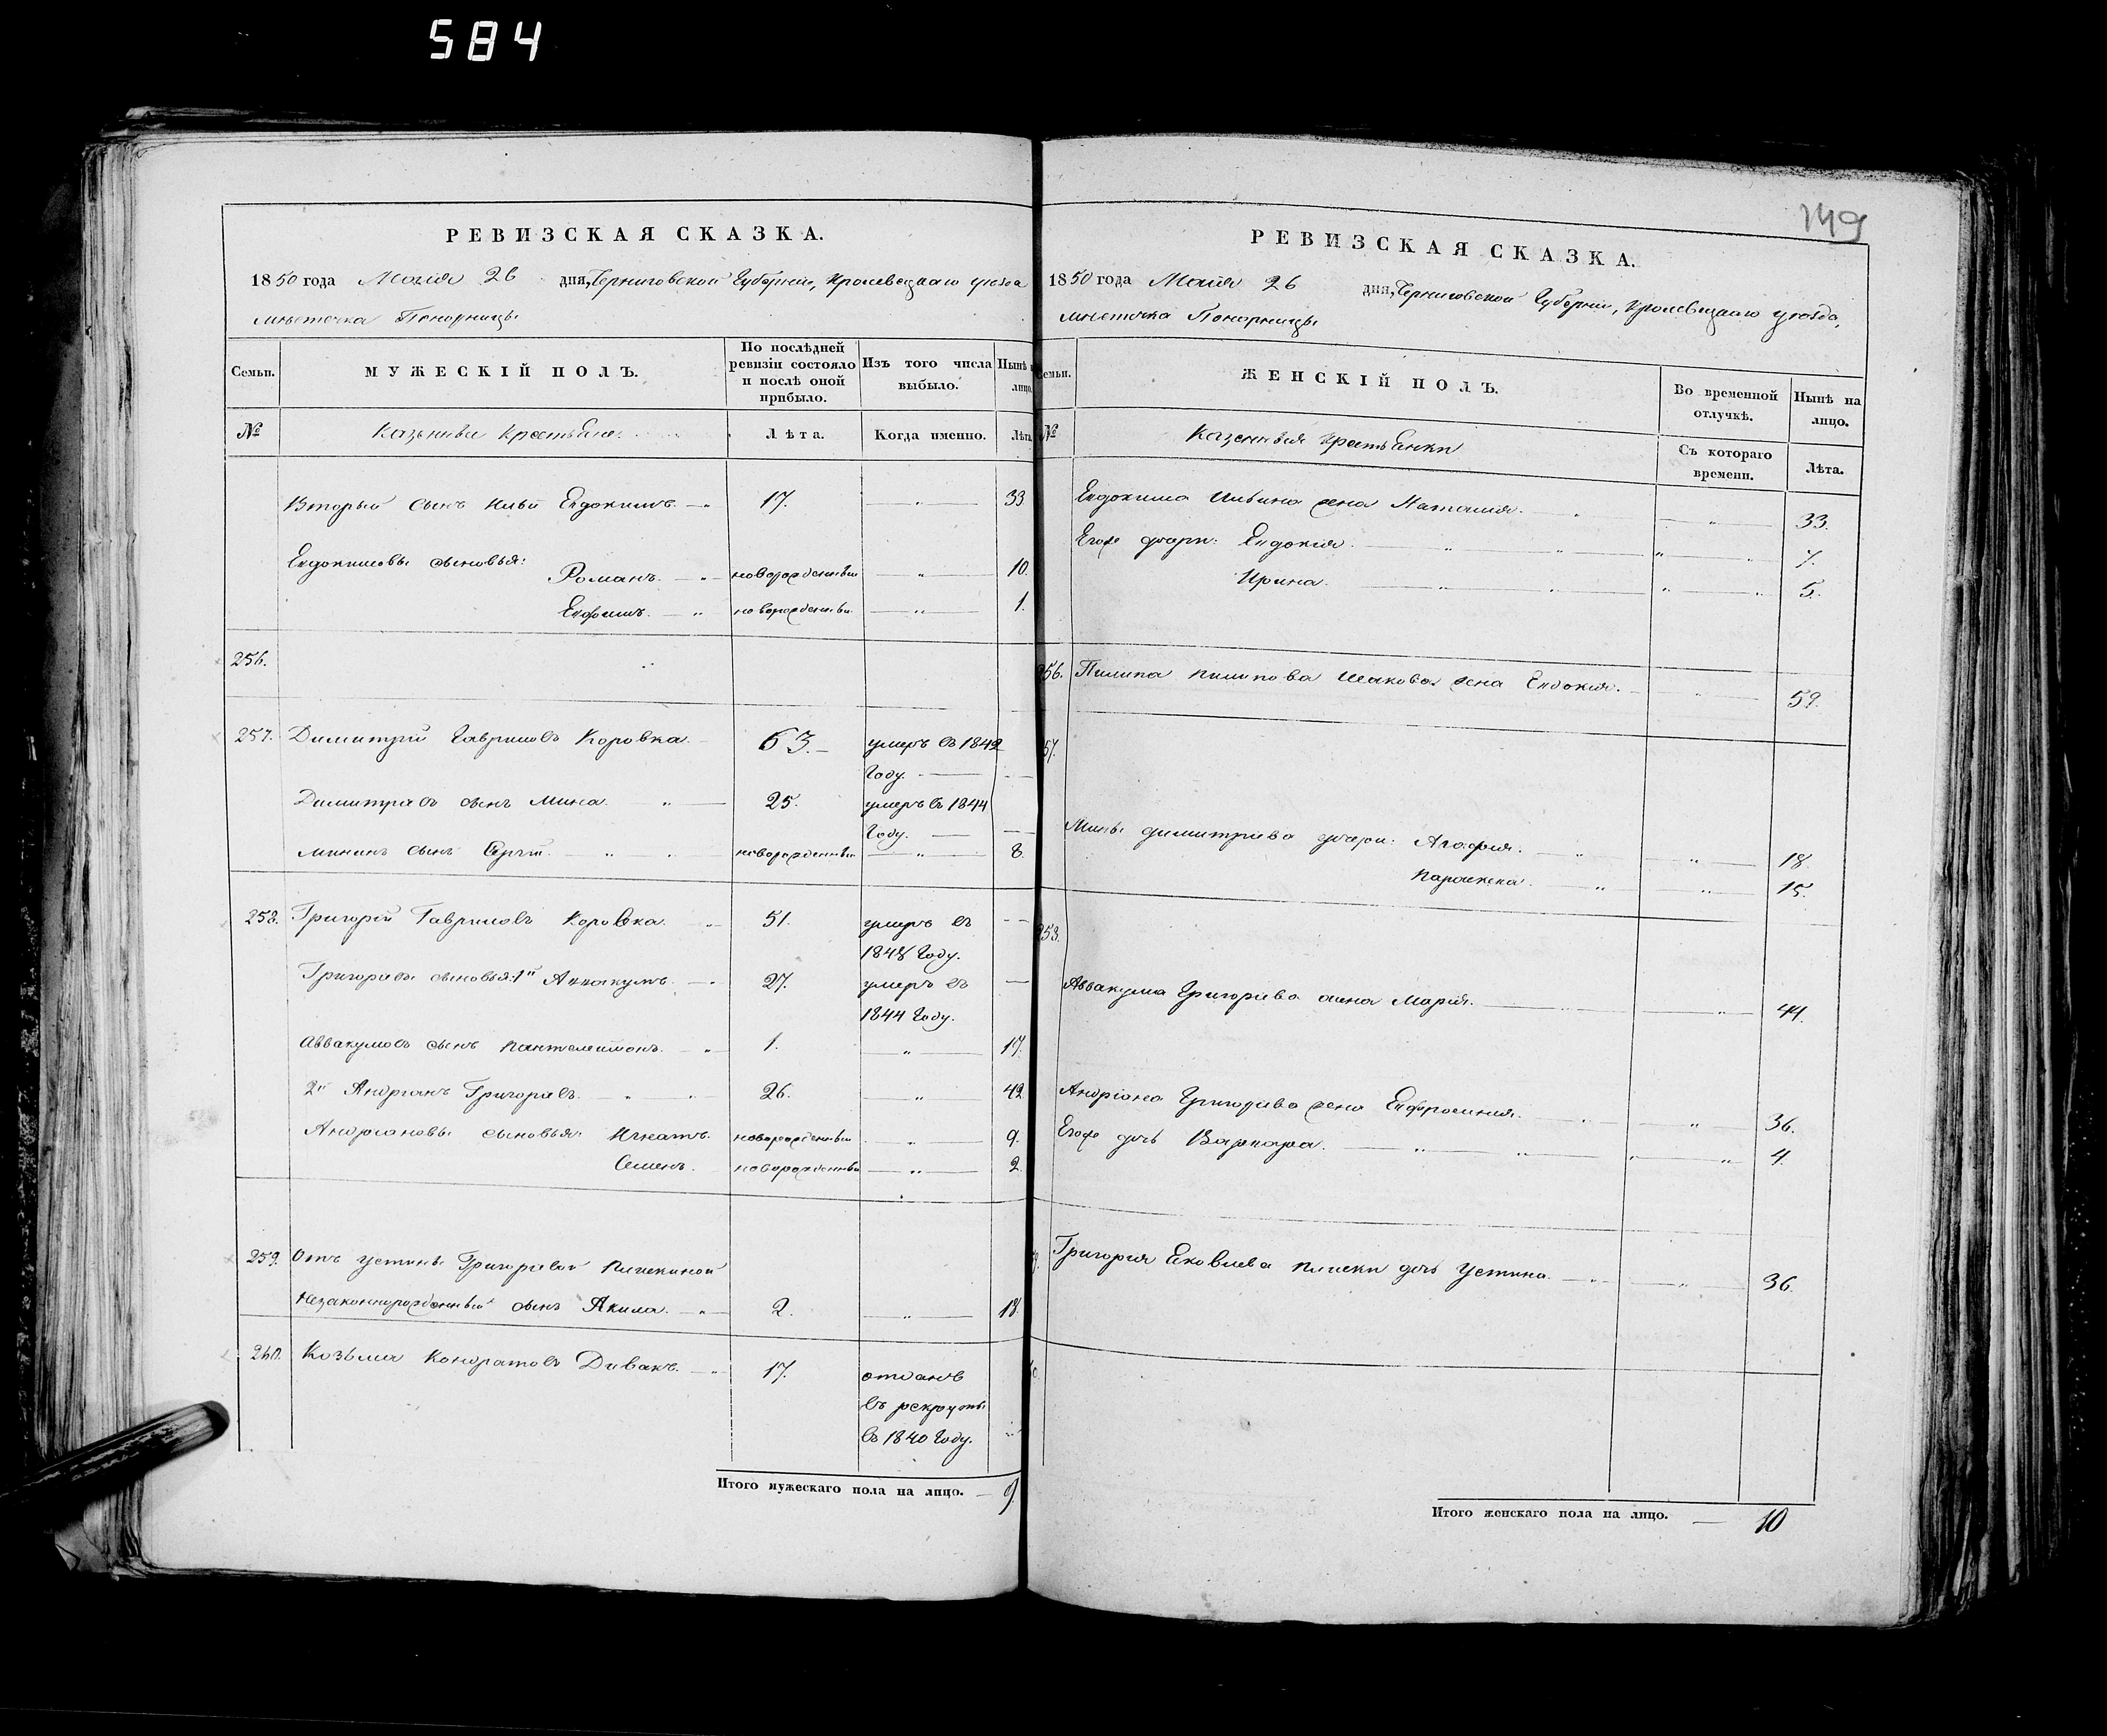 584
149
РЕВИЗСКАЯ СКАЗКА.
1850 года Маія 26 дня, Черниговской Губерніи, Кролевецкаго уезда
мѣстечка Понорницы
Семьи.
МУЖЕСКІЙ ПОЛЪ.
По послѣдней ревизіи состояло и послѣ оной прибыло.
Изъ того числа выбыло.
Нынѣ лицо.
№
Казенные крестьяне.
Лѣта.
Когда именно.
Лѣта
Вторый сынъ Ильи Евдокимъ. 17. 33
Евдокимовы сыновья:
Романъ. новорожденный 10.
Евфимъ. новорожденный 1.
256.
257. Димитрій Гавриловъ Коровка. 63. умеръ въ 1842
Году.
Димитріевъ сынъ Мина. 25. умеръ въ 1844
Году.
Мининъ сынъ Сергій. новорожденный 8.
258. Григорій Гавриловъ Коровка. 51. умеръ въ
1848 Году.
Григоріевы сыновья: 1й Аввакумъ. 27. умеръ въ
1844 Году.
Аввакумовъ сынъ Пантелеймонъ. 1. 17.
2й Андріанъ Григоріевъ. 26. 42
Андріановы сыновья Игнатъ. новорожденный 9.
Семенъ. новорожденный 2
259. Отъ Устины Григоріевой
Незаконнорожденный сынъ Акила. 2. 18.
260. Козьма Кондратовъ Дивакъ. 17. отданъ
въ рекруты
въ 1840 Году.
Итого мужескаго пола на лицо. 9.
РЕВИЗСКАЯ СКАЗКА.
1850 года Маія 26 дня, Черниговской Губерніи, Кролевецкаго уезда,
мѣстечка Понорницы
Семьи.
ЖЕНСКІЙ ПОЛЪ.
Во временной отлучкѣ.
Нынѣ на лицо.
№
Казенныя крестьянки
Съ котораго времени.
Лѣта.
Евдокима Ильина жена Наталия. 33.
Его же дочери: Евдокия. 7.
Ирина. 5.
256. Пилипа Пилипова жена Евдокия. 59.
57.
Мины Димитріева дочери: Агафия. 18
Параскева. 15.
258.
Аввакума Григоріева жена Марія. 44.
Андріана Григоріева жена Евфросиния. 36.
Его же дочь Варвара. 4.
Григория Яковлева дочь Устина. 36.
Итого женскаго пола на лицо. 10